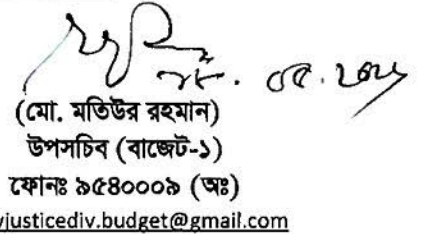 (মো. মতিউর রহমান)
উপসচিব (বাজেট-১)
ফোনঃ ৯৫৪০০০৯ (অঃ)
vjusticediv.budget@gmail.com